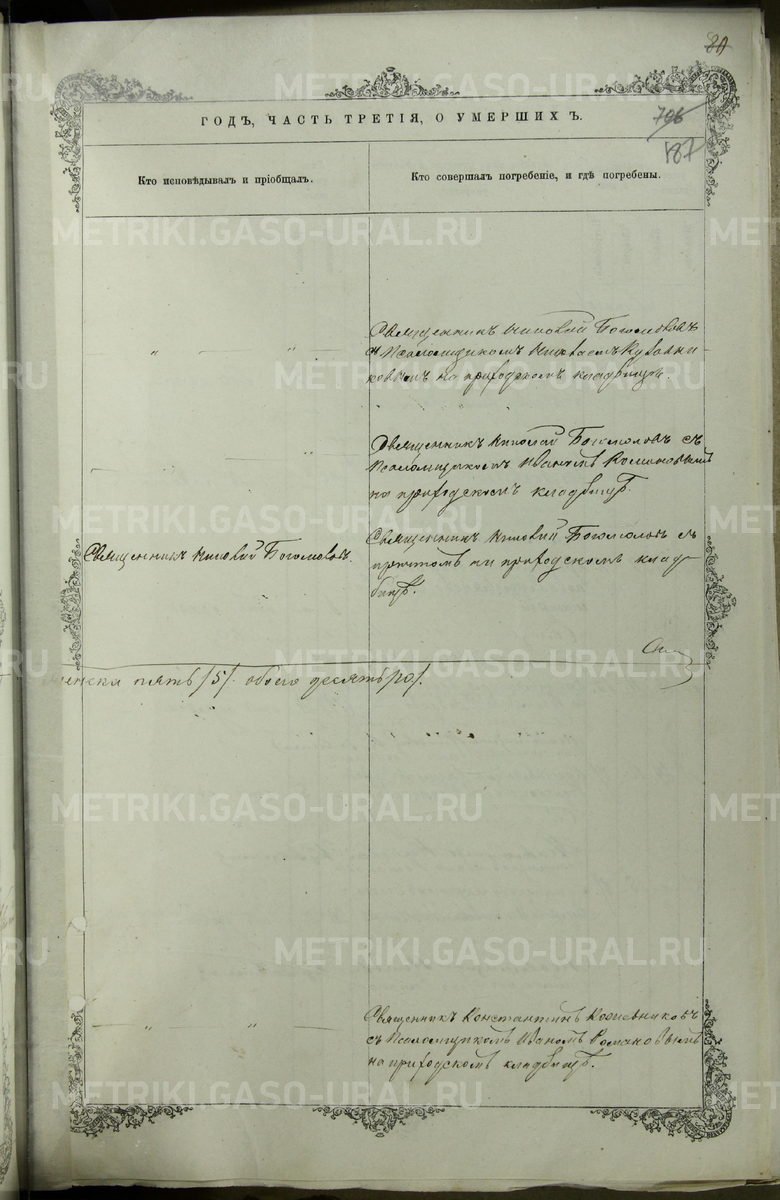 80
ГОДЪ, ЧАСТЬ ТРЕТІЯ, О УМЕРШИХЪ.
706
187
Кто исповѣдывалъ и пріобщалъ.
Кто совершалъ погребеніе, и гдѣ погребены.
Священникъ Николай Богомоловъ
съ Псаломщикомъ
на приходскомъ кладбищѣ.
Священникъ Николай Богомоловъ съ
Псаломщикомъ Иваномъ Романовымъ
на приходскомъ кладбищѣ.
Священникъ Николай Богомоловъ.
Священникъ Николай Богомоловъ съ
причтомъ на приходскомъ клад-
бищѣ.
женска пять /5/. обоего десять /10/.
Священникъ Константинъ Кожевниковъ
съ Псаломщикомъ Иваномъ Романовымъ
на приходскомъ кладбищѣ.
METRIKI.GASO-URAL.RU